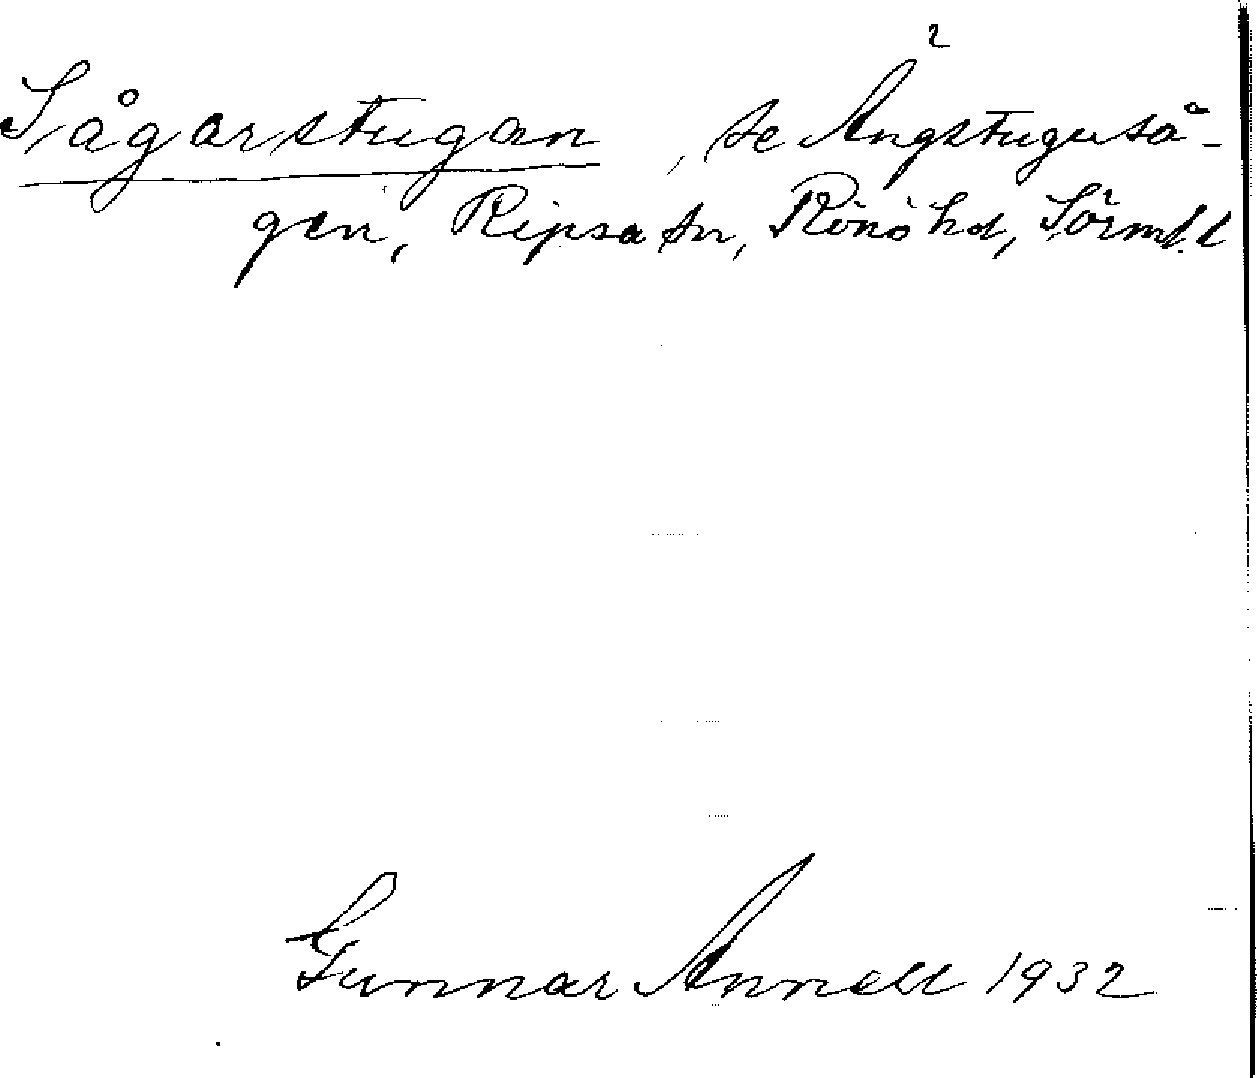 Sågarstugan, se Ängstuguså-
gen, Ripsa sn, Rönö hd, Sörml. l
Gunnar Annell 1932